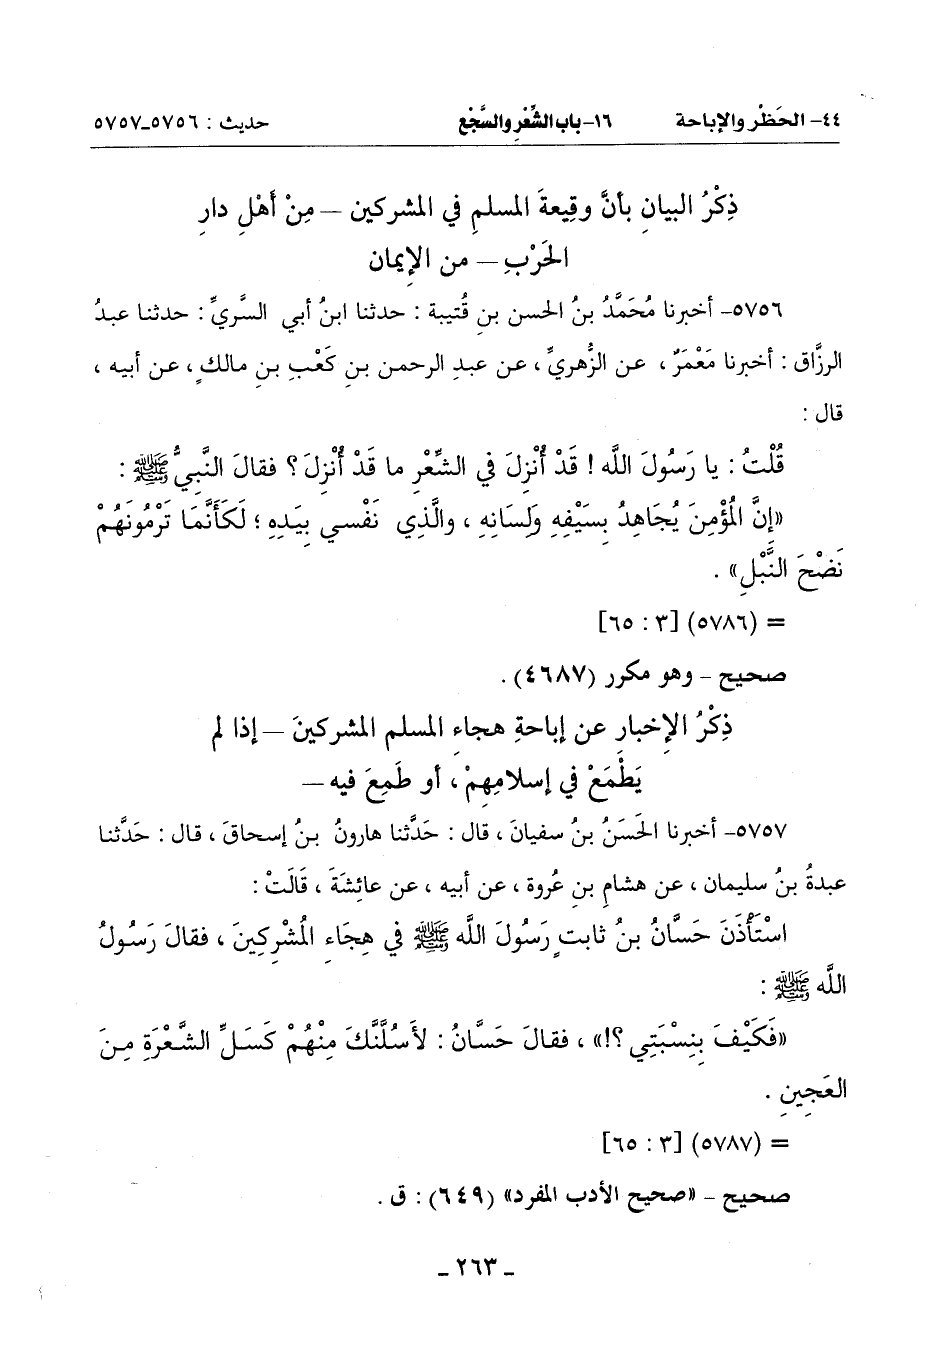 ٤٤- الحَظْر والإباحة ١٦-باب الشِّعْر والسَّجْع حديث : ٥٧٥٦_٥٧٥٧
ذِكْرُ البيانِ بأنَّ وقيعةَ المسلمِ في المشركين – مِنْ أَهْلِ دارِ
الحَرْبِ – من الإيمان
٥٧٥٦- أخبرنا مُحَمَّدُ بنُ الحسن بنِ قُتيبة : حدثنا ابنُ أبي السَّريِّ : حدثنا عبدُ
الرزَّاق : أخبرنا مَعْمَرٌ ، عن الزُّهريِّ ، عن عبدِ الرحمن بنِ كَعْبِ بنِ مالكٍ ، عن أبيه ،
قال :
قُلْتُ : يا رَسُولَ اللَّه ! قَدْ أُنْزِلَ في الشِّعْرِ ما قَدْ أُنْزِلَ ؟ فقالَ النَّبيُّ ﷺ :
«إنَّ المُؤْمِنَ يُجَاهِدُ بِسَيْفِهِ وَلِسَانِهِ ، والَّذِي نَفْسي بِيَدِهِ ؛ لَكَأَنَّمَا تَرْمُونَهُمْ
نَضْحَ النَّبْلِ» .
= (٥٧٨٦) [٣ : ٦٥]
صحيح - وهو مكرر (٤٦٨٧) .
ذِكْرُ الإخبارِ عن إباحةِ هجاءِ المسلمِ المشركينَ – إذا لم
يَطْمَعْ في إسلامِهِمْ ، أو طَمِعَ فيه –
٥٧٥٧- أخبرنا الحَسَنُ بنُ سفيانَ ، قال : حَدَّثنا هارونُ بنُ إسحاقَ ، قال : حَدَّثنا
عبدةُ بنُ سليمان ، عن هشامِ بنِ عُروة ، عن أبيه ، عن عائشَةَ ، قَالَتْ :
اسْتَأْذَنَ حَسَّانُ بنُ ثابتٍ رَسُولَ اللَّه ﷺ في هِجَاءِ المُشْرِكِينَ ، فقالَ رَسُولُ
اللَّه ﷺ :
«فَكَيْفَ بِنِسْبَتِي ؟!» ، فقالَ حَسَّانُ : لأَسُلَّنَّكَ مِنْهُمْ كَسَلِّ الشَّعْرَةِ مِنَ
العَجِينِ .
= (٥٧٨٧) [٣ : ٦٥]
صحيح - «صحيح الأدب المفرد» (٦٤٩) : ق .
_ ٢٦٣ _